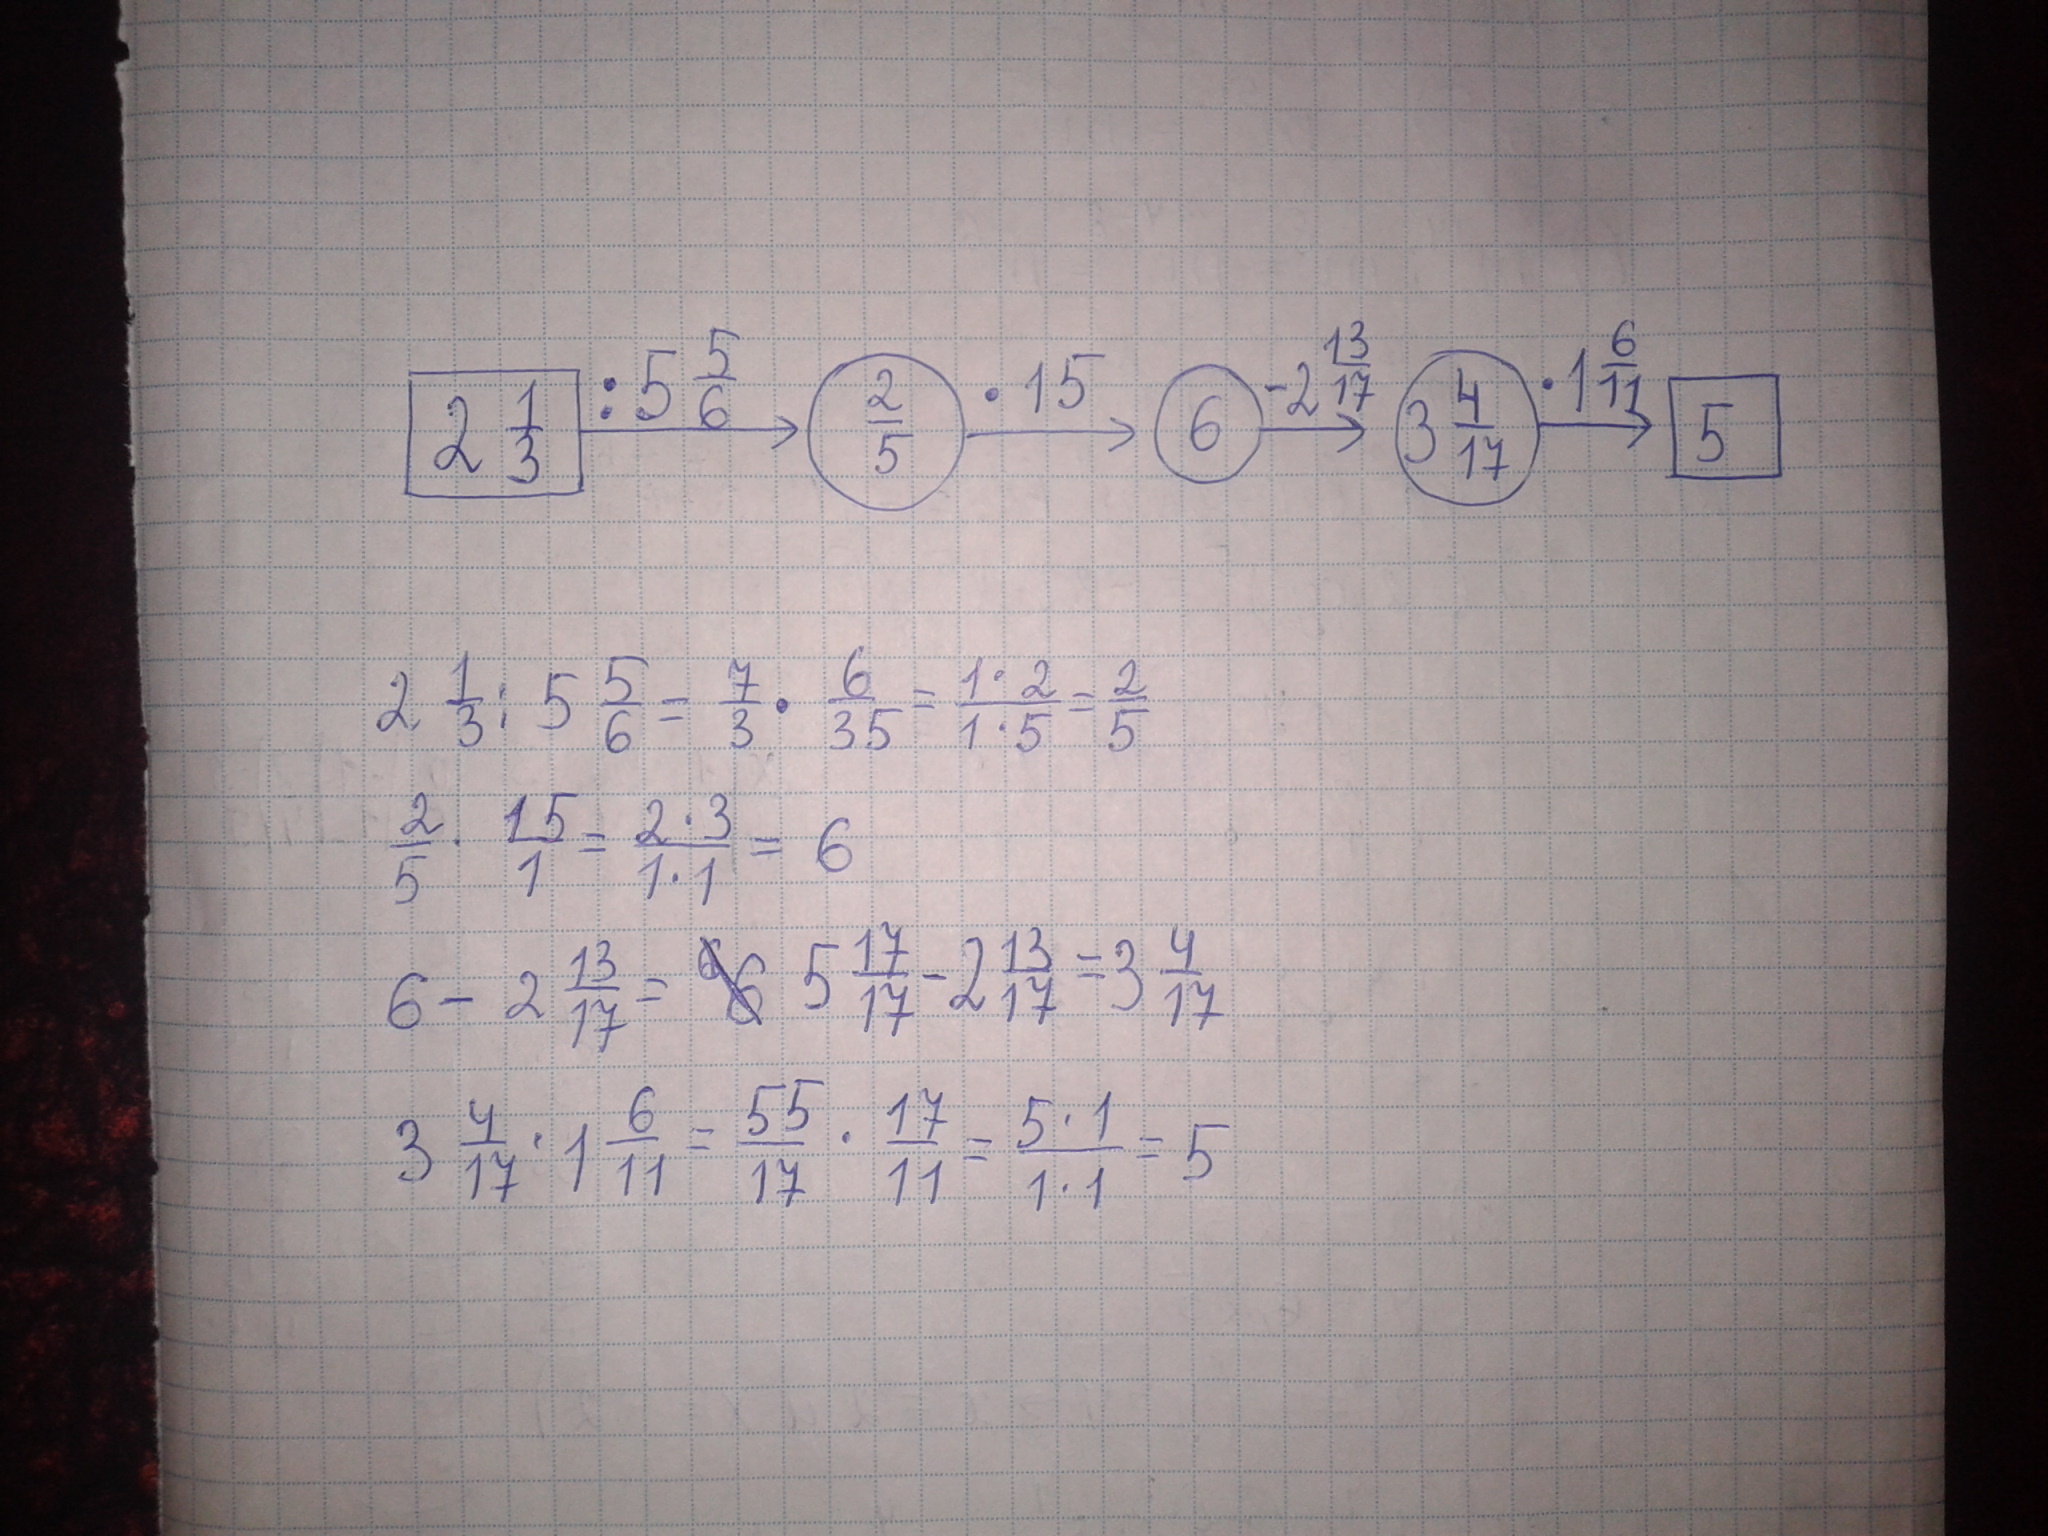 2 1/3 : 5 5/6 → 2/5 · 15 → 6 -2 13/17 → 3 4/17 · 1 6/11 → 5
2 1/3 : 5 5/6 = 7/3 · 6/35 = 1·2/1·5 = 2/5
2/5 · 15/1 = 2·3/1·1 = 6
6 - 2 13/17 = 5 17/17 - 2 13/17 = 3 4/17
3 4/17 · 1 6/11 = 55/17 · 17/11 = 5·1/1·1 = 5